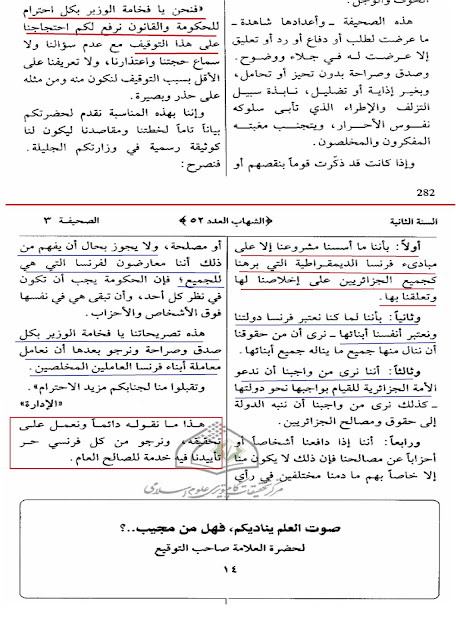 هذه الصحيفة ـ وأعدادها شاهدة ـ
ما عرضت لطلب أو دفاع أو رد أو تعليق
إلا عرضت لـه في جـلاء ووضـوح.
وصدق وصراحة بدون تحيز أو تحامل،
وبغير إذاية أو تضليل، نابـذة سبيل
التزلف والإطراء الذي تأبى سلوكه
نفـوس الأحـرار، ويتجنـب مغبتـه
المفكرون والمخلصون.
وإذا كانت قد ذكّرت قوماً بنقصهم أو
«فنحن يا فخامة الوزير بكل احترام
للحكومة والقانون نرفع لكم احتجاجنا
على هذا التوقيف مع عدم سؤالنا ولا
سماع حجتنا واعتذارنا، ولا تعريفنا على
الأقل بسبب التوقيف لنكون منه ومن مثله
على حذر وبصيرة.
وإننا بهذه المناسبة نقدم لحضرتكم
بياناً تاماً لخطتنا ومقاصدنا ليكون لنا
كوثيقة رسمية في وزارتكم الجليلة.
فنصرح:
282
السنة الثانية
﴿الشهاب العدد ٥٢﴾
الصحيفـة ٣
أولاً: بأننا ما أسسنا مشروعنا إلا على
مبادىء فرنسا الديمقراطية التي برهنا
كجميع الجزائريين على إخلاصنا لها
وتعلقنا بها.
وثانياً: بأننا لما كنا نعتبر فرنسا دولتنا
ونعتبر أنفسنا أبنائها ـ نرى أن من حقوقنا
أن ننال منها جميع ما يناله جميع أبنائها.
وثالثاً: أننا نرى من واجبنا أن ندعو
الأمة الجزائرية للقيام بواجبها نحو دولتها
ـ كذلك نرى من واجبنا أن ننبه الدولة
إلى حقوق ومصالح الجزائريين.
ورابعـاً: أننا إذا دافعنا أشخاصاً أو
أحزاباً عن مصالحنا فإن ذلك لا يكون منا
إلا خاصاً بهم ما دمنا مختلفين في رأي
أو مصلحة، ولا يجوز بحال أن يفهم من
ذلك أننا معارضون لفرنسا التي هي
للجميع؛ فإن الحكومة يجب أن تكون
في نظر كل أحد، وأن تبقى هي في نفسها
فوق الأشخاص والأحزاب.
هذه تصريحاتنا يا فخامة الوزير بكل
صدق وصراحة ونرجو بعدها أن نعامل
معاملة أبناء فرنسا العاملين المخلصين.
وتقبلوا منا لجنابكم مزيد الاحترام».
«الإدارة»
هـذا مـا نقـولـه دائمـاً ونعمـل علـى
تحقيقه، ونرجـو من كل فرنسي حـر
تأييدنا فيه خدمة للصالح العام.
مرکز تحقیقات کامپیوتری علوم اسلامی
صوت العلم يناديكم، فهل من مجيب..؟
لحضرة العلامة صاحب التوقيع
١٤